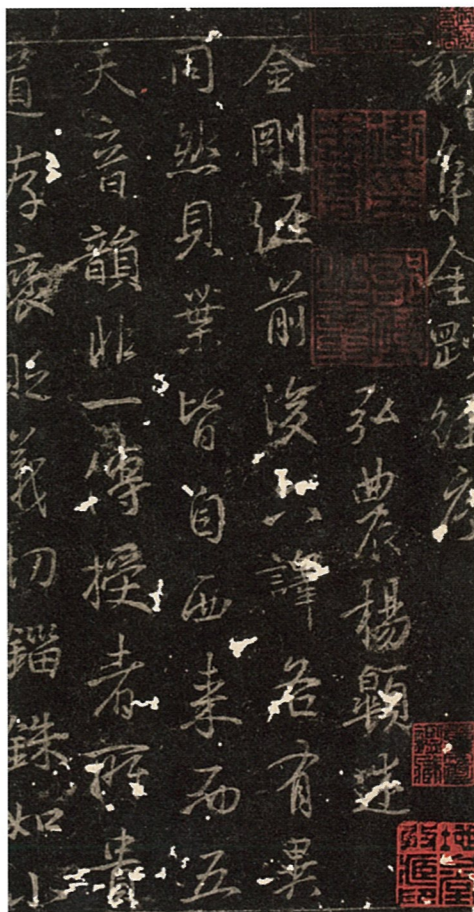 新集金剛經序
弘農楊述
金剛經前後六譯各有異
同然貝葉皆自西來而五
天音韻非一傳授者罕貴
道存褒貶義切錙銖如小